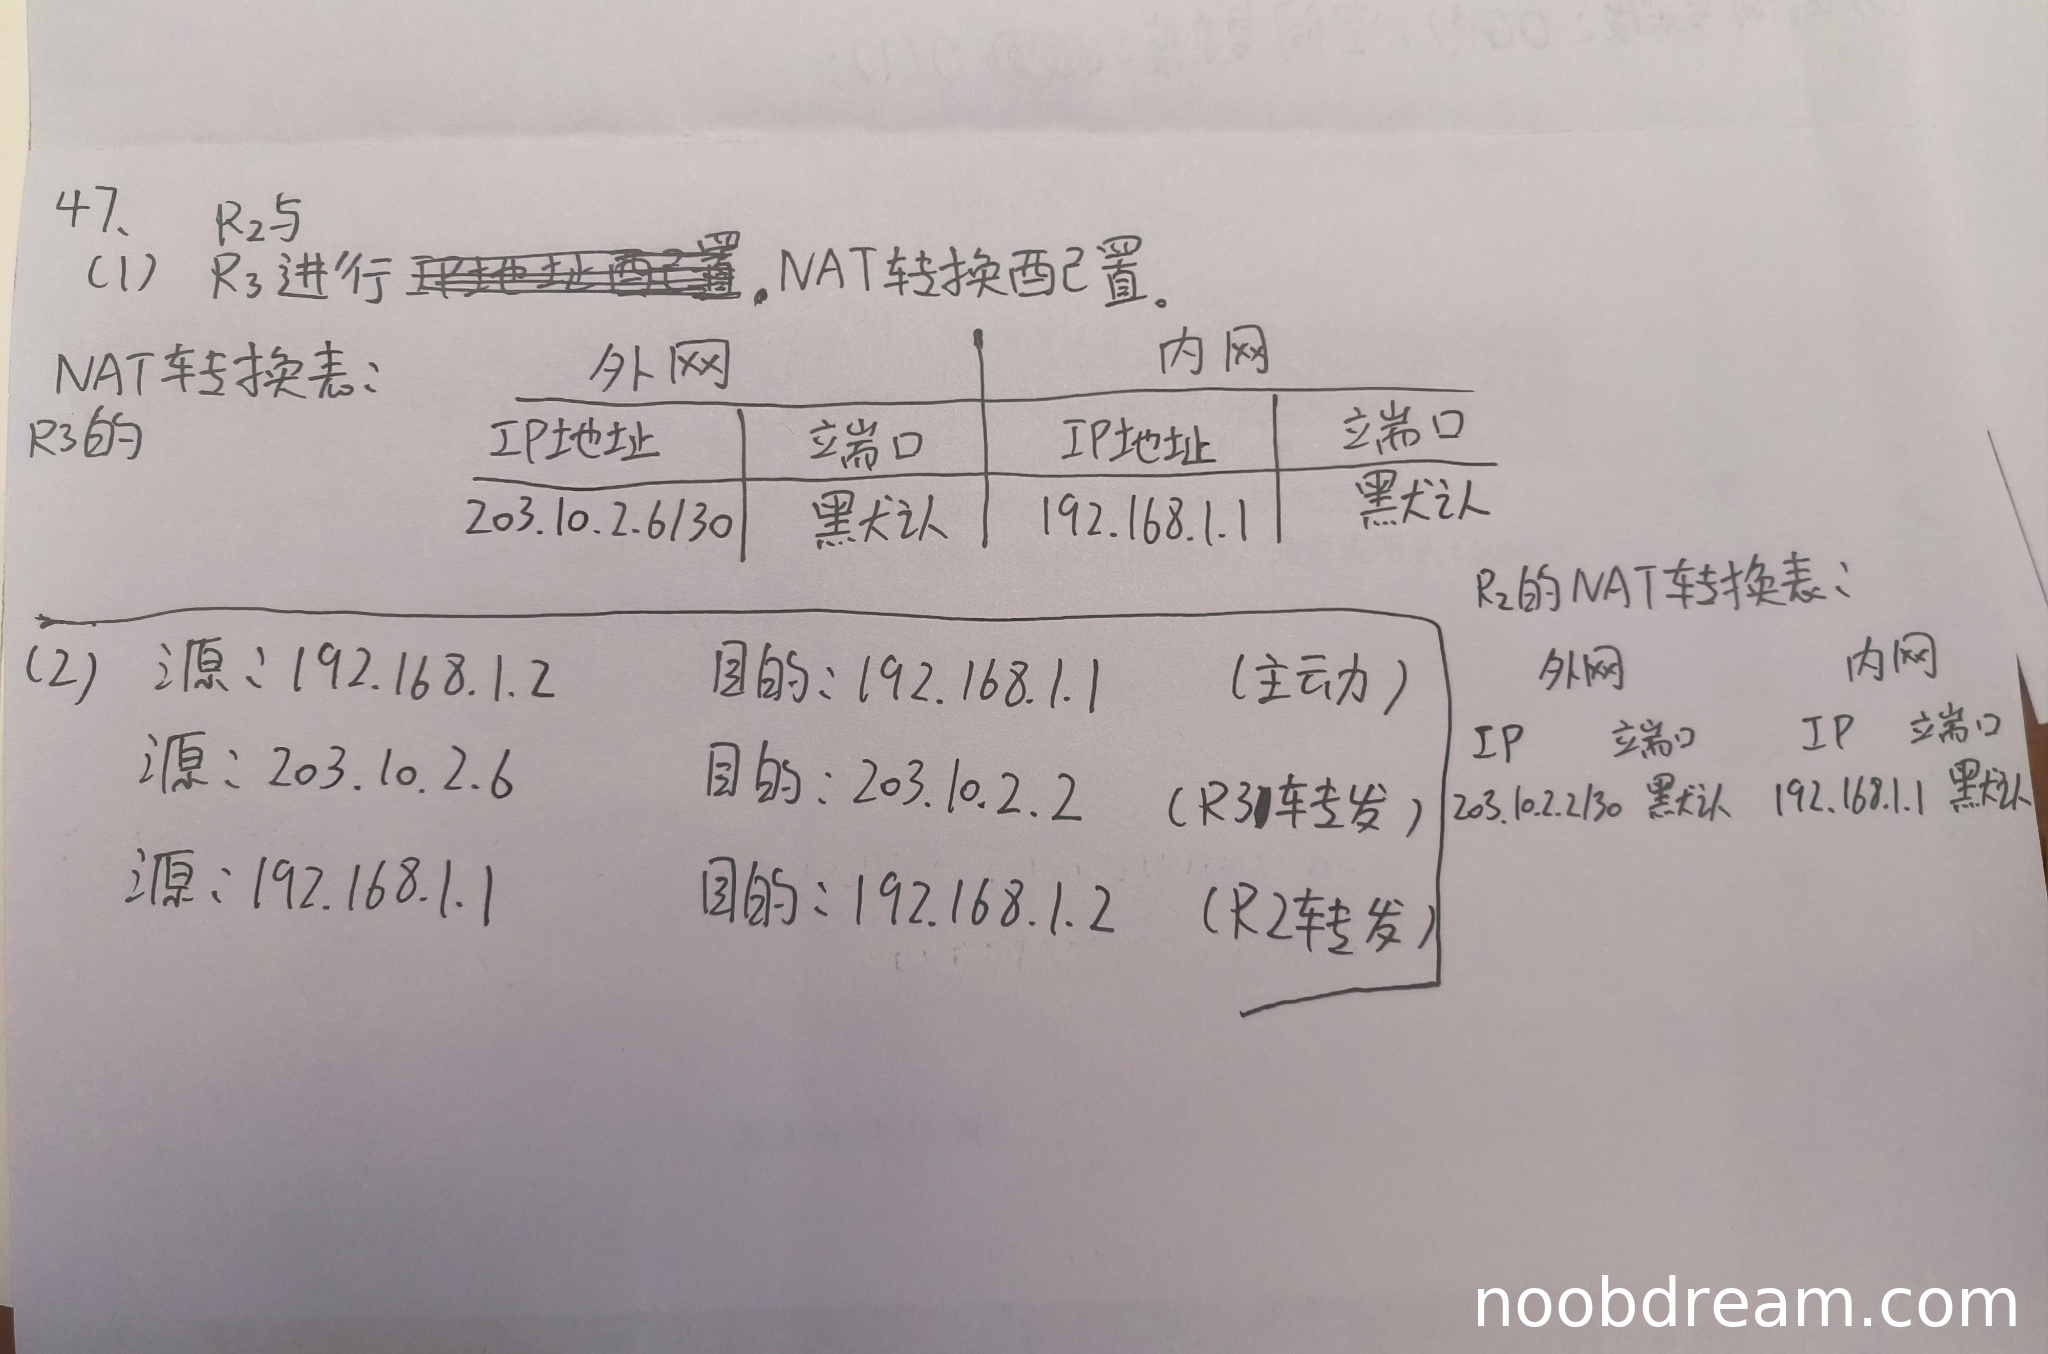 47、 R2与
(1) R3进行 NAT转换配置。
NAT转换表:
R3的
外网 内网
IP地址 端口 IP地址 端口
203.10.2.6/30 默认 192.168.1.1 默认
(2) 源:192.168.1.2 目的:192.168.1.1 (主动)
源:203.10.2.6 目的:203.10.2.2 (R3转发)
源:192.168.1.1 目的:192.168.1.2 (R2转发)
R2的NAT转换表:
外网 内网
IP 端口 IP 端口
203.10.2.2/30 默认 192.168.1.1 默认
noobdream.com